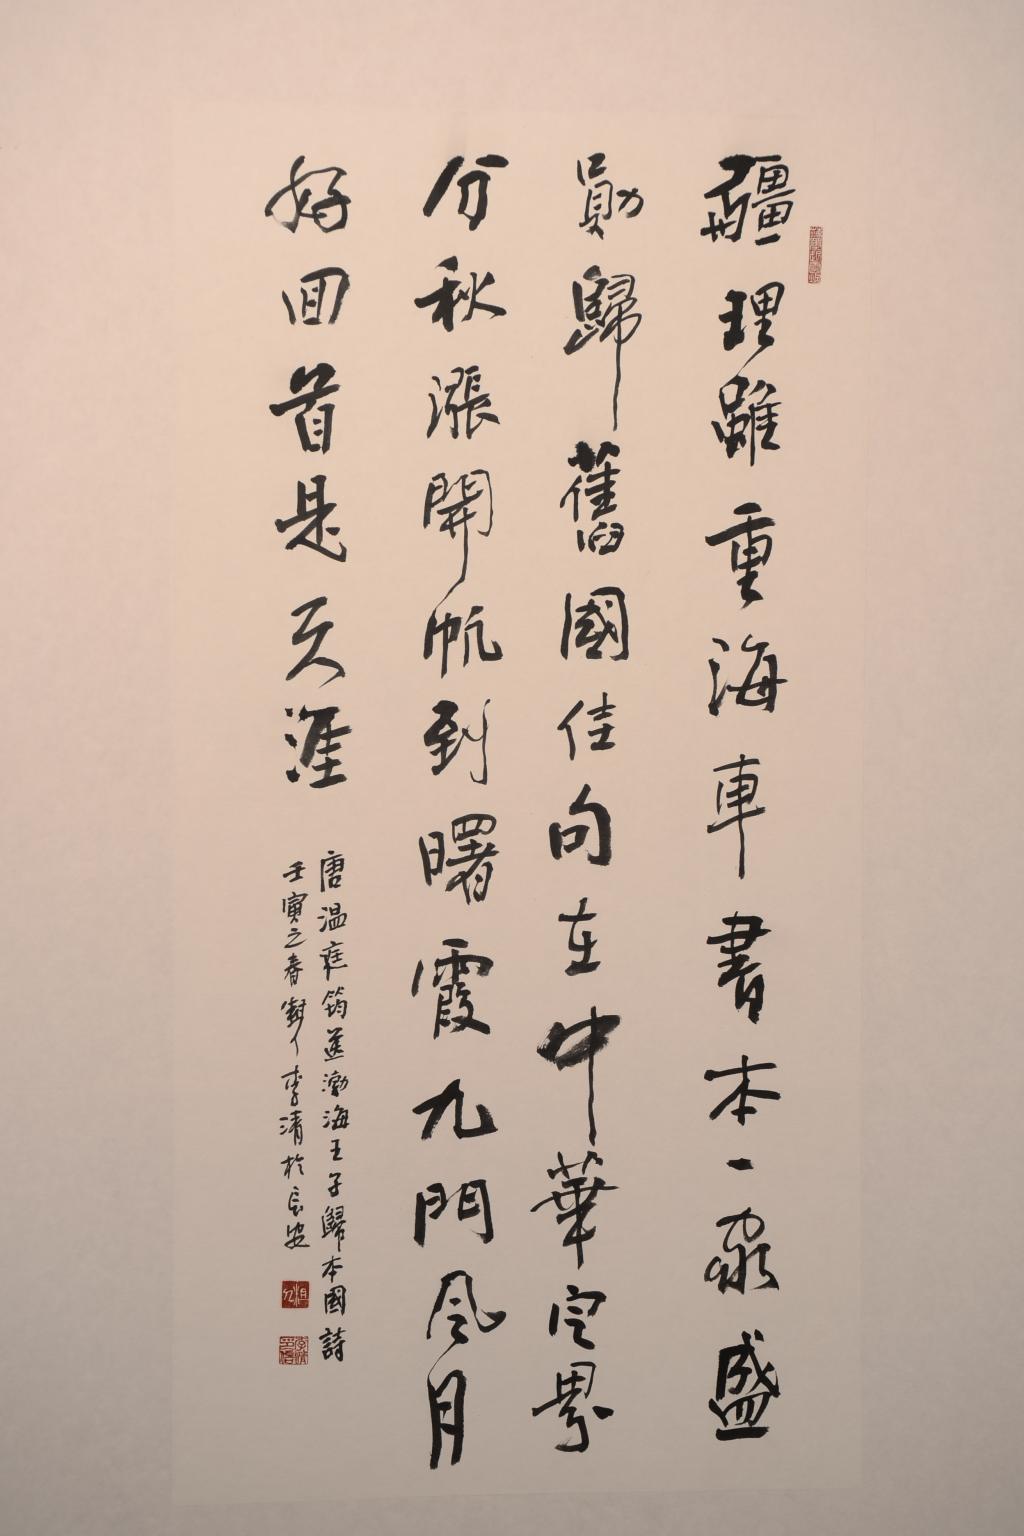 疆理雖重海車書本一家盛
勛歸舊國佳句在中華定界
分秋漲開帆到曙霞九門風月
好回首是天涯
唐温庭筠送渤海王子歸本國詩
壬寅之春 李清於長安